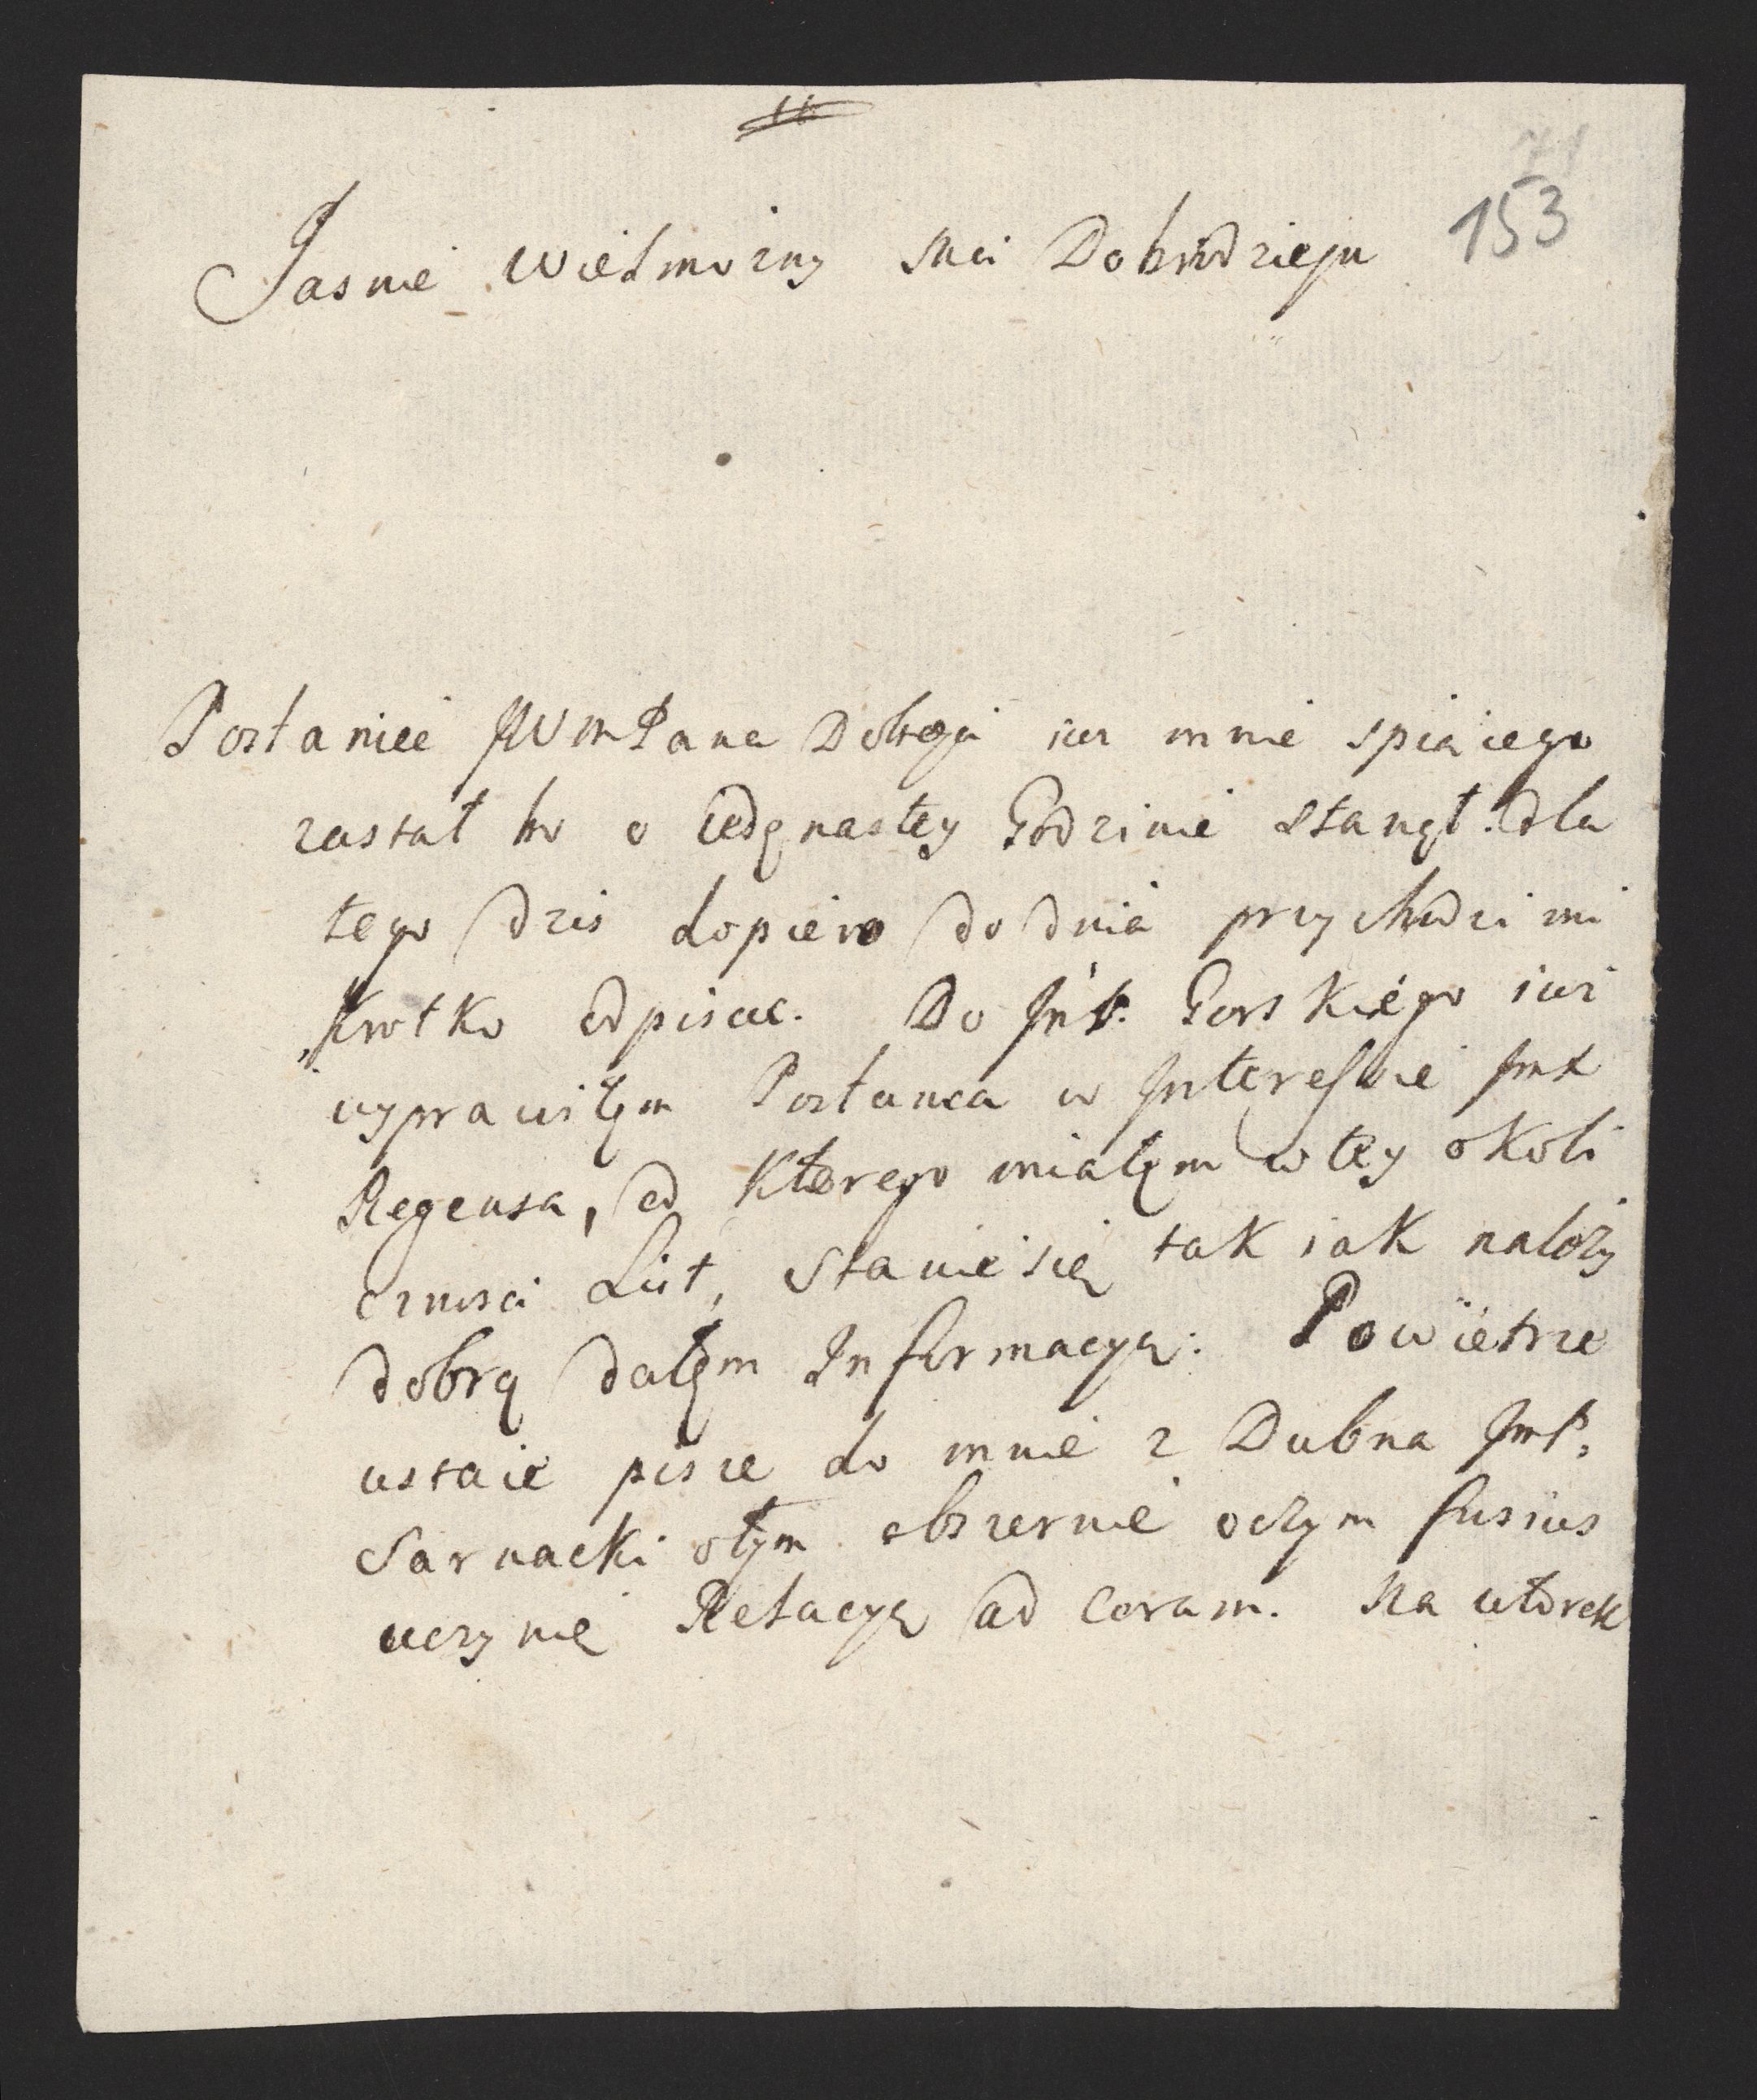 153
Jasnie Wielmozny Mci Dobrodzieju
Posłaniec JWmPana Dobrgo iuz mnie spiącego
zastał bo o iedęnastey Godzinie stanął. dla
tego dzis dopiero do dnia przychodzi mi
krotko odpisac. Do JmP. Gorskiego iuz
wyprawiłęm Posłanca w Interessie Jmx
Regensa, od ktorego miałęm w tey okoli
cznosci List, stanie się tak iak nalezy
dobrą dałęm Informacyą. Powietrze
ustaie pisze do mnie z Dubna JmP.
Sarnacki o tym obszernie oczym fusius
uczynię Relacyą ad coram. Na wtorek